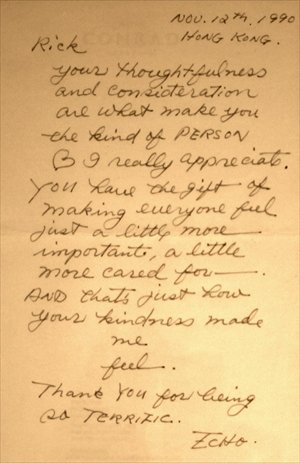 Nov. 12th, 1990
Hong Kong.
Rick
your thoughtfulness
and consideration
are what make you
the kind of PERSON
I really appreciate.
You have the gift of
making everyone feel
just a little more
important, a little
more cared for—.
AND that's just how
your kindness made
me
feel.
Thank You for being
so TERRIFIC.
ECHO.